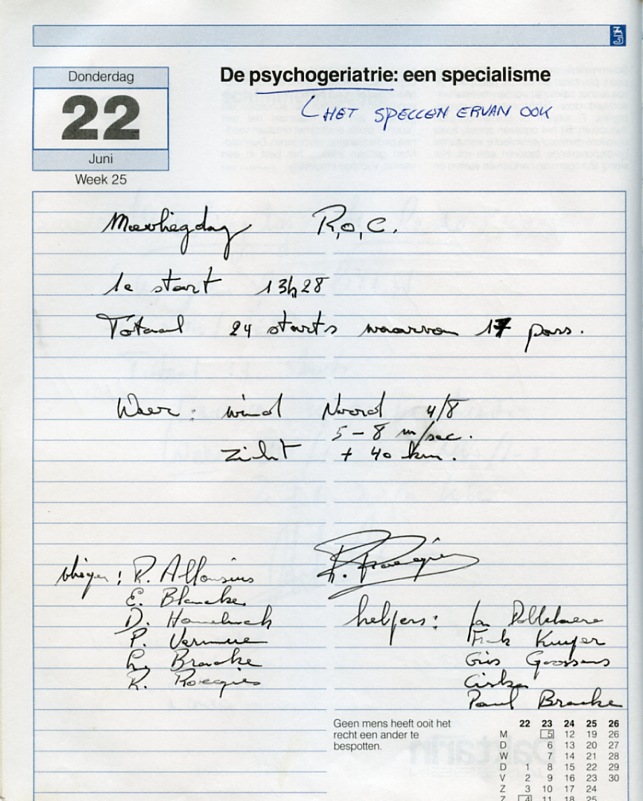 Donderdag
22
Juni
Week 25
De psychogeriatrie: een specialisme
HET SPELLEN ERVAN OOK
Meevliegdag R.O.C.
1e start 13h28
Totaal 24 starts waarvan 17 pass.
Weer: wind Noord 4/8
5-8 m/sec.
zicht + 40 km.
R. Roegies
vliegers: R. Allonsius
E. Blancke
D.
P. Vermeire
L. Bracke
R. Roegies
helpers: Jan
Frank Kuyper
Cris Goossens
Ciska
Paul Bracke
Geen mens heeft ooit het
recht een ander te
bespotten.
22 23 24 25 26
M 5 12 19 26
D 6 13 20 27
W 7 14 21 28
D 1 8 15 22 29
V 2 9 16 23 30
Z 3 10 17 24
Z 4 11 18 25